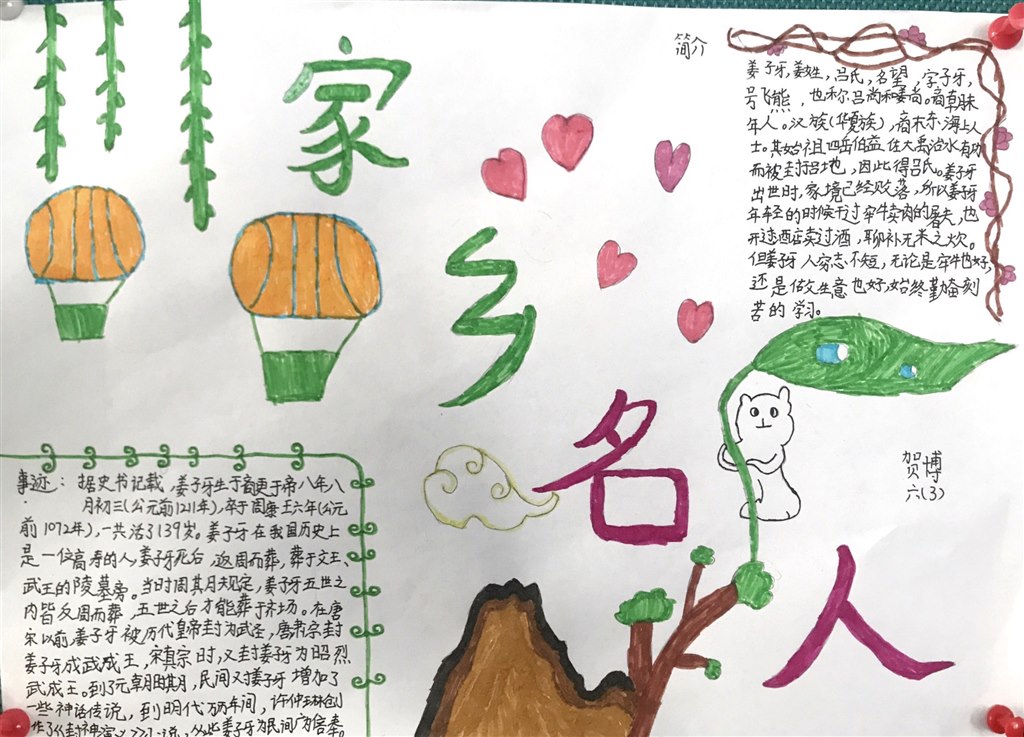 家
乡
名
人
简介
姜子牙,姜姓,吕氏,名望,字子牙,
号飞熊,也称吕尚和姜尚。商朝末
年人。汉族(华夏族),商末东海上人
士。其始祖四岳伯益佐大禹治水有功
而被封于吕地,因此得吕氏。姜子牙
出世时,家境已经败落,所以姜子牙
年轻的时候干过宰牛卖肉的屠夫,也
开过酒店卖过酒,聊补无米之炊。
但姜子牙人穷志不短,无论是宰牛也好,
还是做生意也好,始终勤奋刻
苦的学习。
贺博
六(3)
事迹:据史书记载,姜子牙生于商更于帝八年八
月初三(公元前1211年),卒于周康王六年(公元
前1072年),一共活了139岁。姜子牙在我国历史上
是一位高寿的人,姜子牙死后,返周而葬,葬于文王、
武王的陵墓旁。当时周其月规定,姜子牙五世之
内皆反周而葬,五世之后才能葬于市场。在唐
宋以前,姜子牙被历代皇帝封为武圣,唐肃宗封
姜子牙成武成王,宋真宗时,又封姜子牙为昭烈
武成王。到了元朝时期,民间又对姜子牙增加了
一些神话传说,到明代万历年间,许仲琳创
作了《封神演义》小说,从此,姜子牙为民间广信奉。